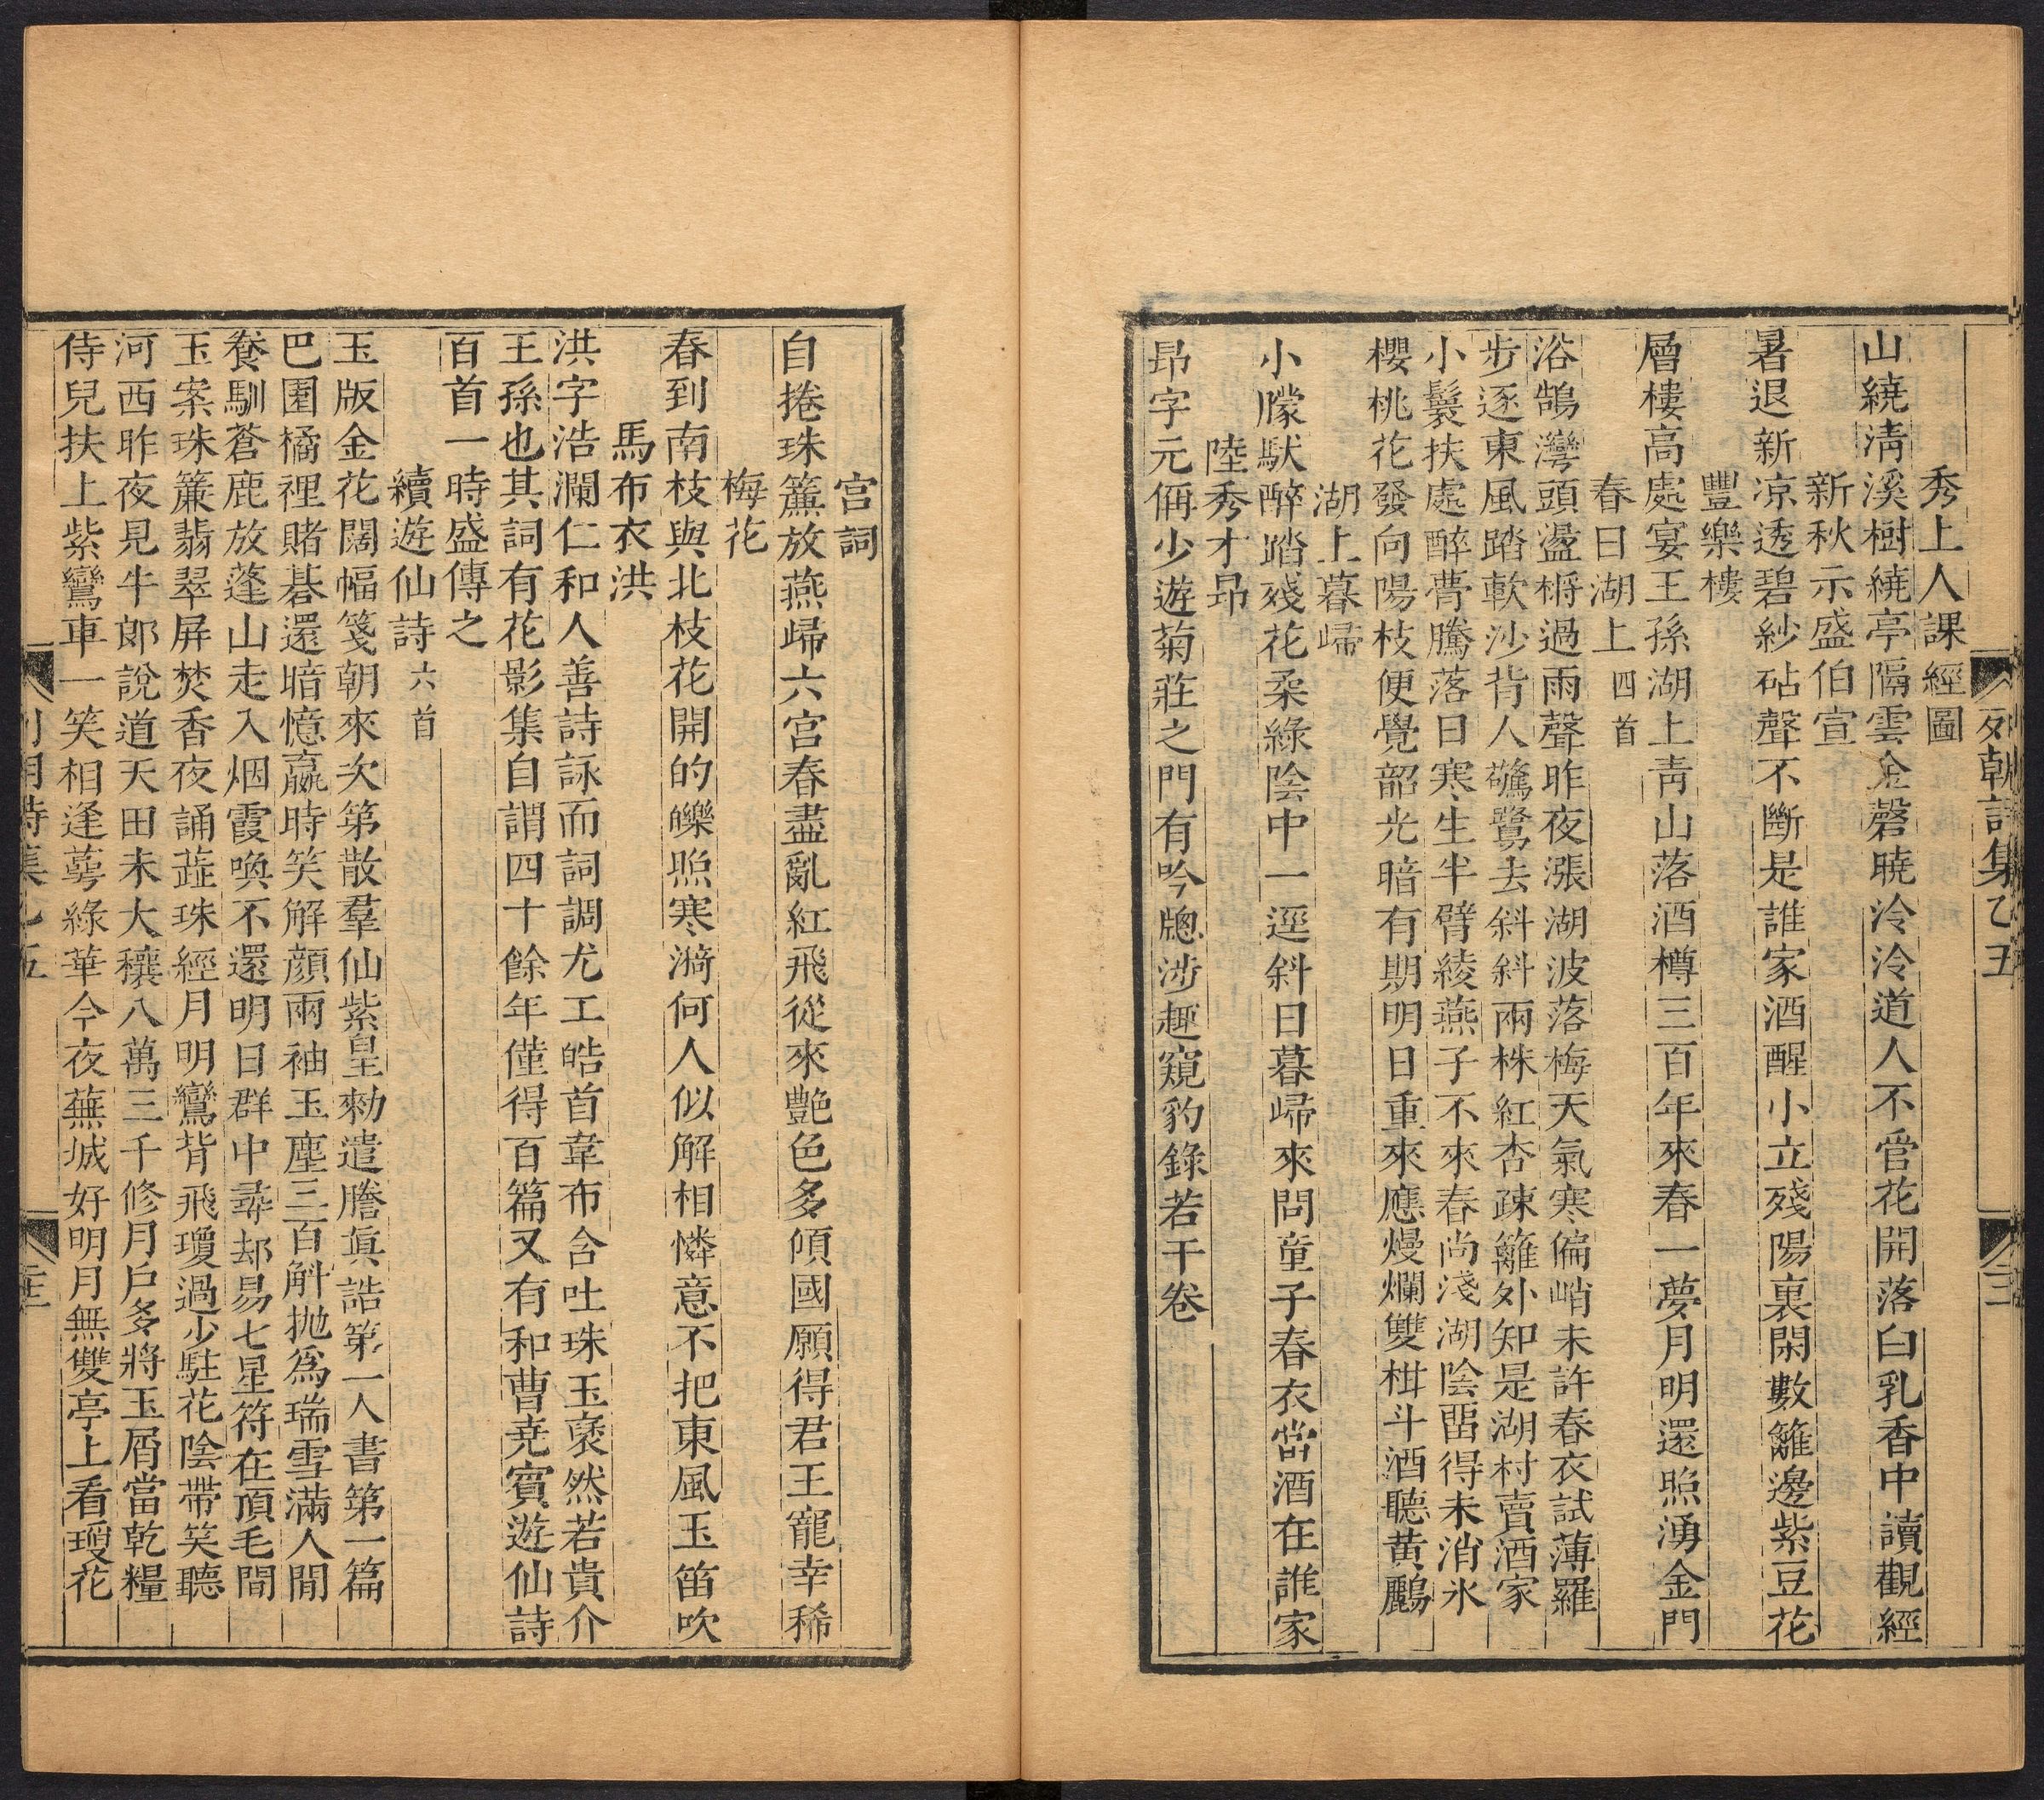 列朝詩集乙五
秀上人課經圖
山繞淸溪樹繞亭隔雲金磬曉泠泠道人不管花開落白乳香中讀觀經
新秋示盛伯宣
暑退新凉透碧紗砧聲不斷是誰家酒醒小立殘陽裏閑數籬邊紫豆花
豐樂樓
層樓高處宴王孫湖上靑山落酒樽三百年來春一夢月明還照湧金門
春日湖上四首
浴鵠灣頭盪槳過雨聲昨夜漲湖波落梅天氣寒偏峭未許春衣試薄羅
步逐東風踏軟沙背人驚鷺去斜斜兩株紅杏疎籬外知是湖村賣酒家
小鬟扶處醉瞢騰落日寒生半臂綾燕子不來春尚淺湖陰畱得未消氷
櫻桃花發向陽枝便覺韶光暗有期明日重來應熳爛雙柑斗酒聽黄鸝
湖上暮歸
小朦馱醉踏殘花柔綠陰中一逕斜日暮歸來問童子春衣當酒在誰家
陸秀才昻
昻字元偁少遊菊莊之門有吟牕涉趣窺豹錄若干卷
宮詞
自捲珠簾放燕歸六宮春盡亂紅飛從來艶色多傾國願得君王寵幸稀
梅花
春到南枝與北枝花開的皪照寒漪何人似解相憐意不把東風玉笛吹
馬布衣洪
洪字浩瀾仁和人善詩詠而詞調尤工皓首韋布含吐珠玉褎然若貴介
王孫也其詞有花影集自謂四十餘年僅得百篇又有和曹堯賓遊仙詩
百首一時盛傳之
續遊仙詩六首
玉版金花闊幅箋朝來次第散羣仙紫皇勑遣謄眞誥第一人書第一篇
巴園橘裡賭棊還暗憶嬴時笑解顔兩袖玉塵三百斛抛爲瑞雪滿人間
養馴蒼鹿放蓬山走入烟霞喚不還明日群中尋却易七星符在頂毛間
玉案珠簾翡翠屏焚香夜誦蘂珠經月明鸞背飛瓊過少駐花陰帶笑聽
河西昨夜見牛郞說道天田未大穰八萬三千修月戶多將玉屑當乾糧
侍兒扶上紫鸞車一笑相逢萼綠華今夜蕪城好明月無雙亭上看瓊花